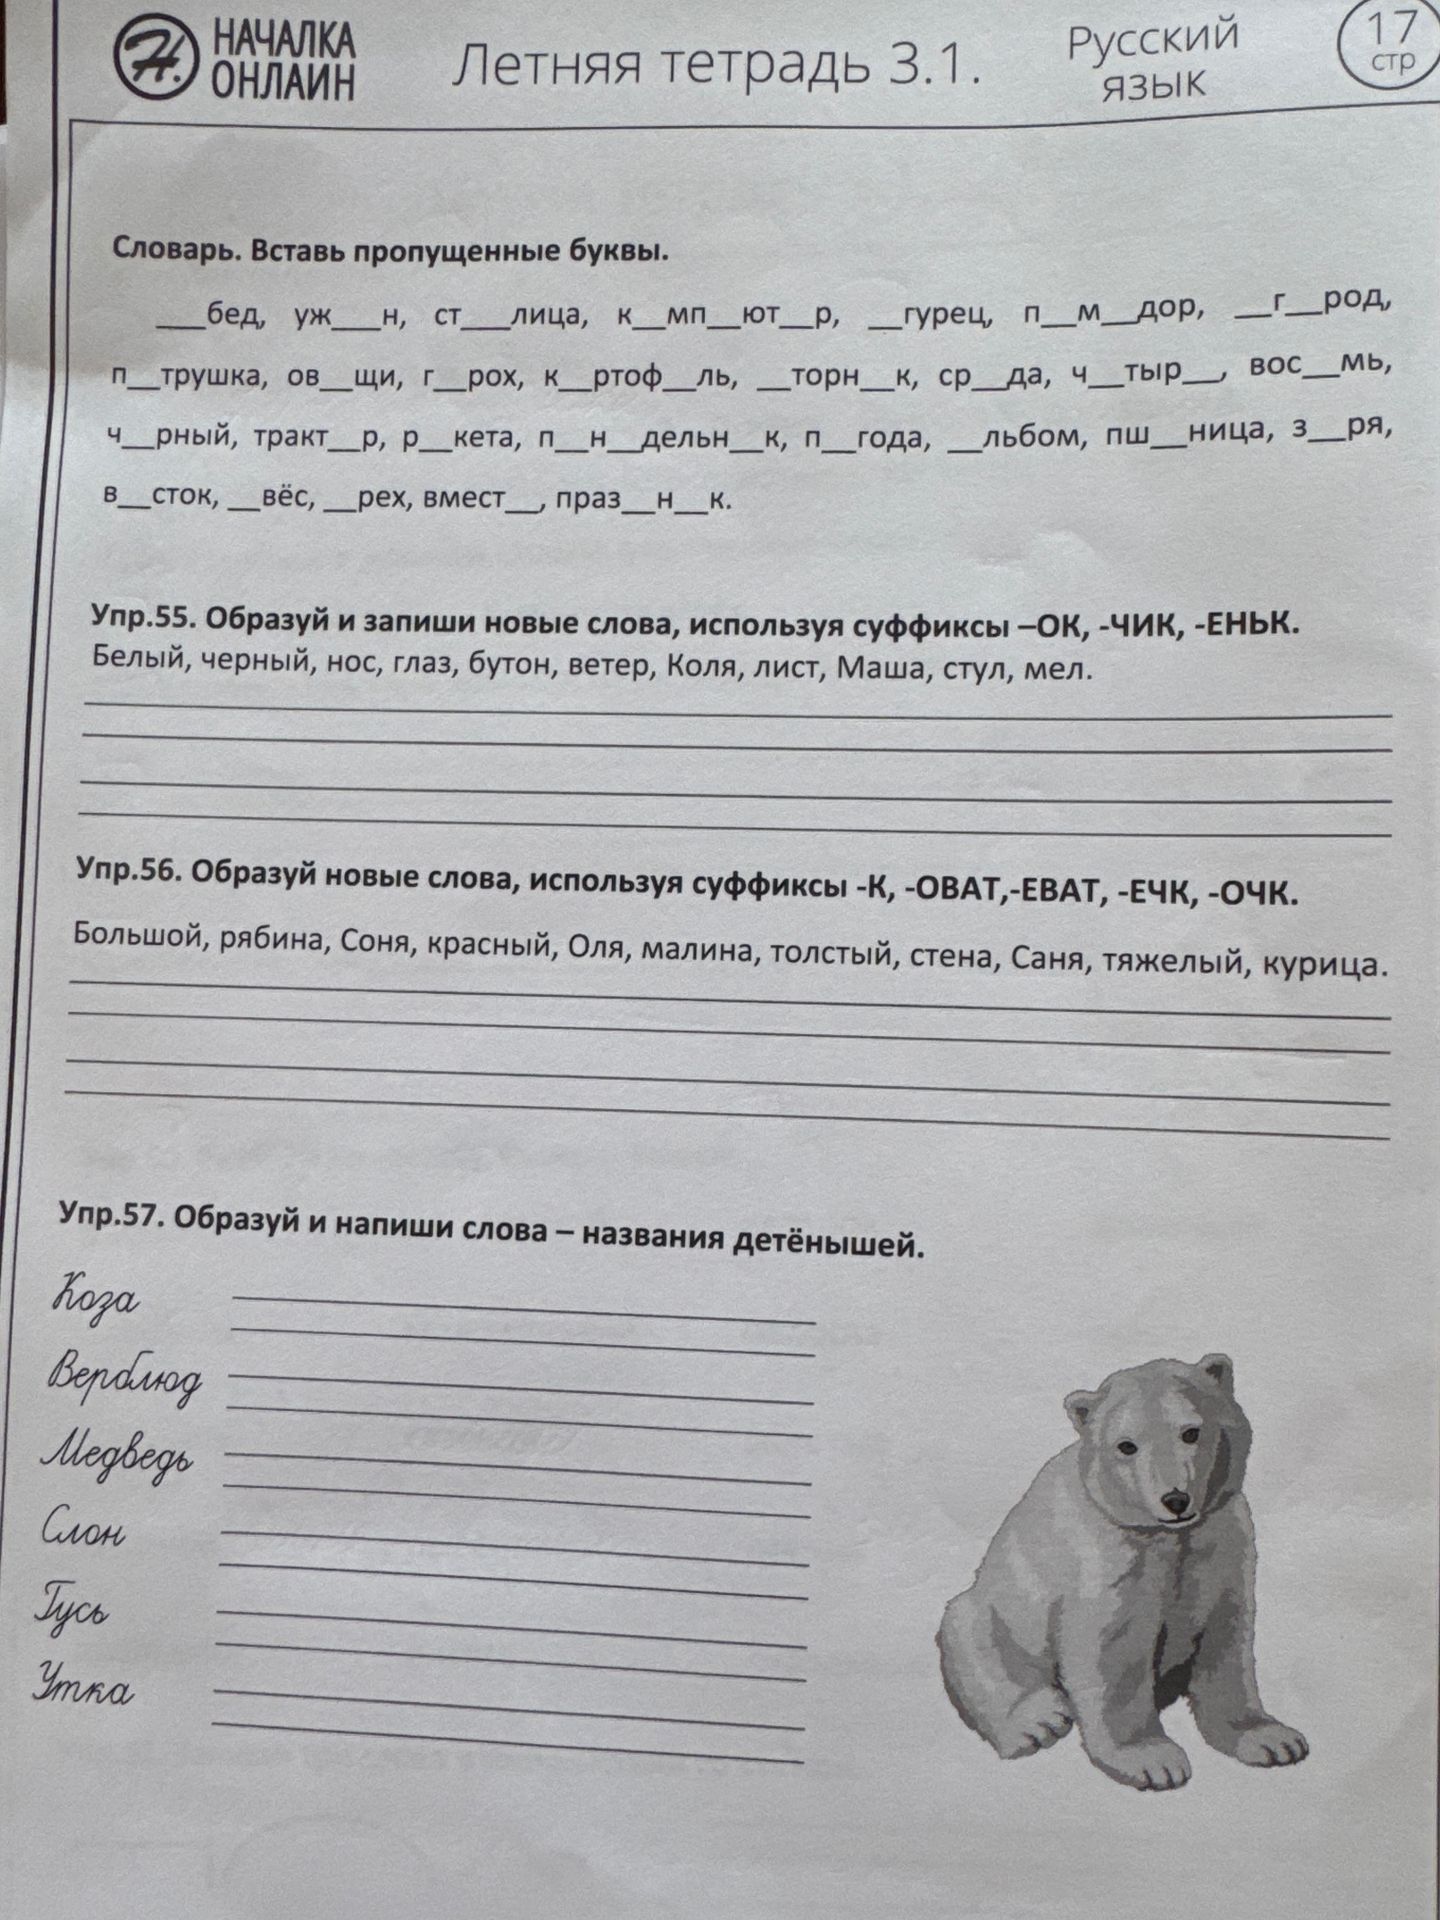 НАЧАЛКА
ОНЛАЙН
Летняя тетрадь 3.1.
Русский
язык
17
стр
Словарь. Вставь пропущенные буквы.
___бед, уж___н, ст___лица, к__мп__ют__р, __гурец, п__м__дор, __г__род,
п__трушка, ов__щи, г__рох, к__ртоф__ль, __торн__к, ср__да, ч__тыр__, вос__мь,
ч__рный, тракт__р, р__кета, п__н__дельн__к, п__года, __льбом, пш__ница, з__ря,
в__сток, __вёс, __рех, вмест__, праз__н__к.
Упр.55. Образуй и запиши новые слова, используя суффиксы –ОК, -ЧИК, -ЕНЬК.
Белый, черный, нос, глаз, бутон, ветер, Коля, лист, Маша, стул, мел.
Упр.56. Образуй новые слова, используя суффиксы -К, -ОВАТ,-ЕВАТ, -ЕЧК, -ОЧК.
Большой, рябина, Соня, красный, Оля, малина, толстый, стена, Саня, тяжелый, курица.
Упр.57. Образуй и напиши слова – названия детёнышей.
Коза
Верблюд
Медведь
Слон
Гусь
Утка